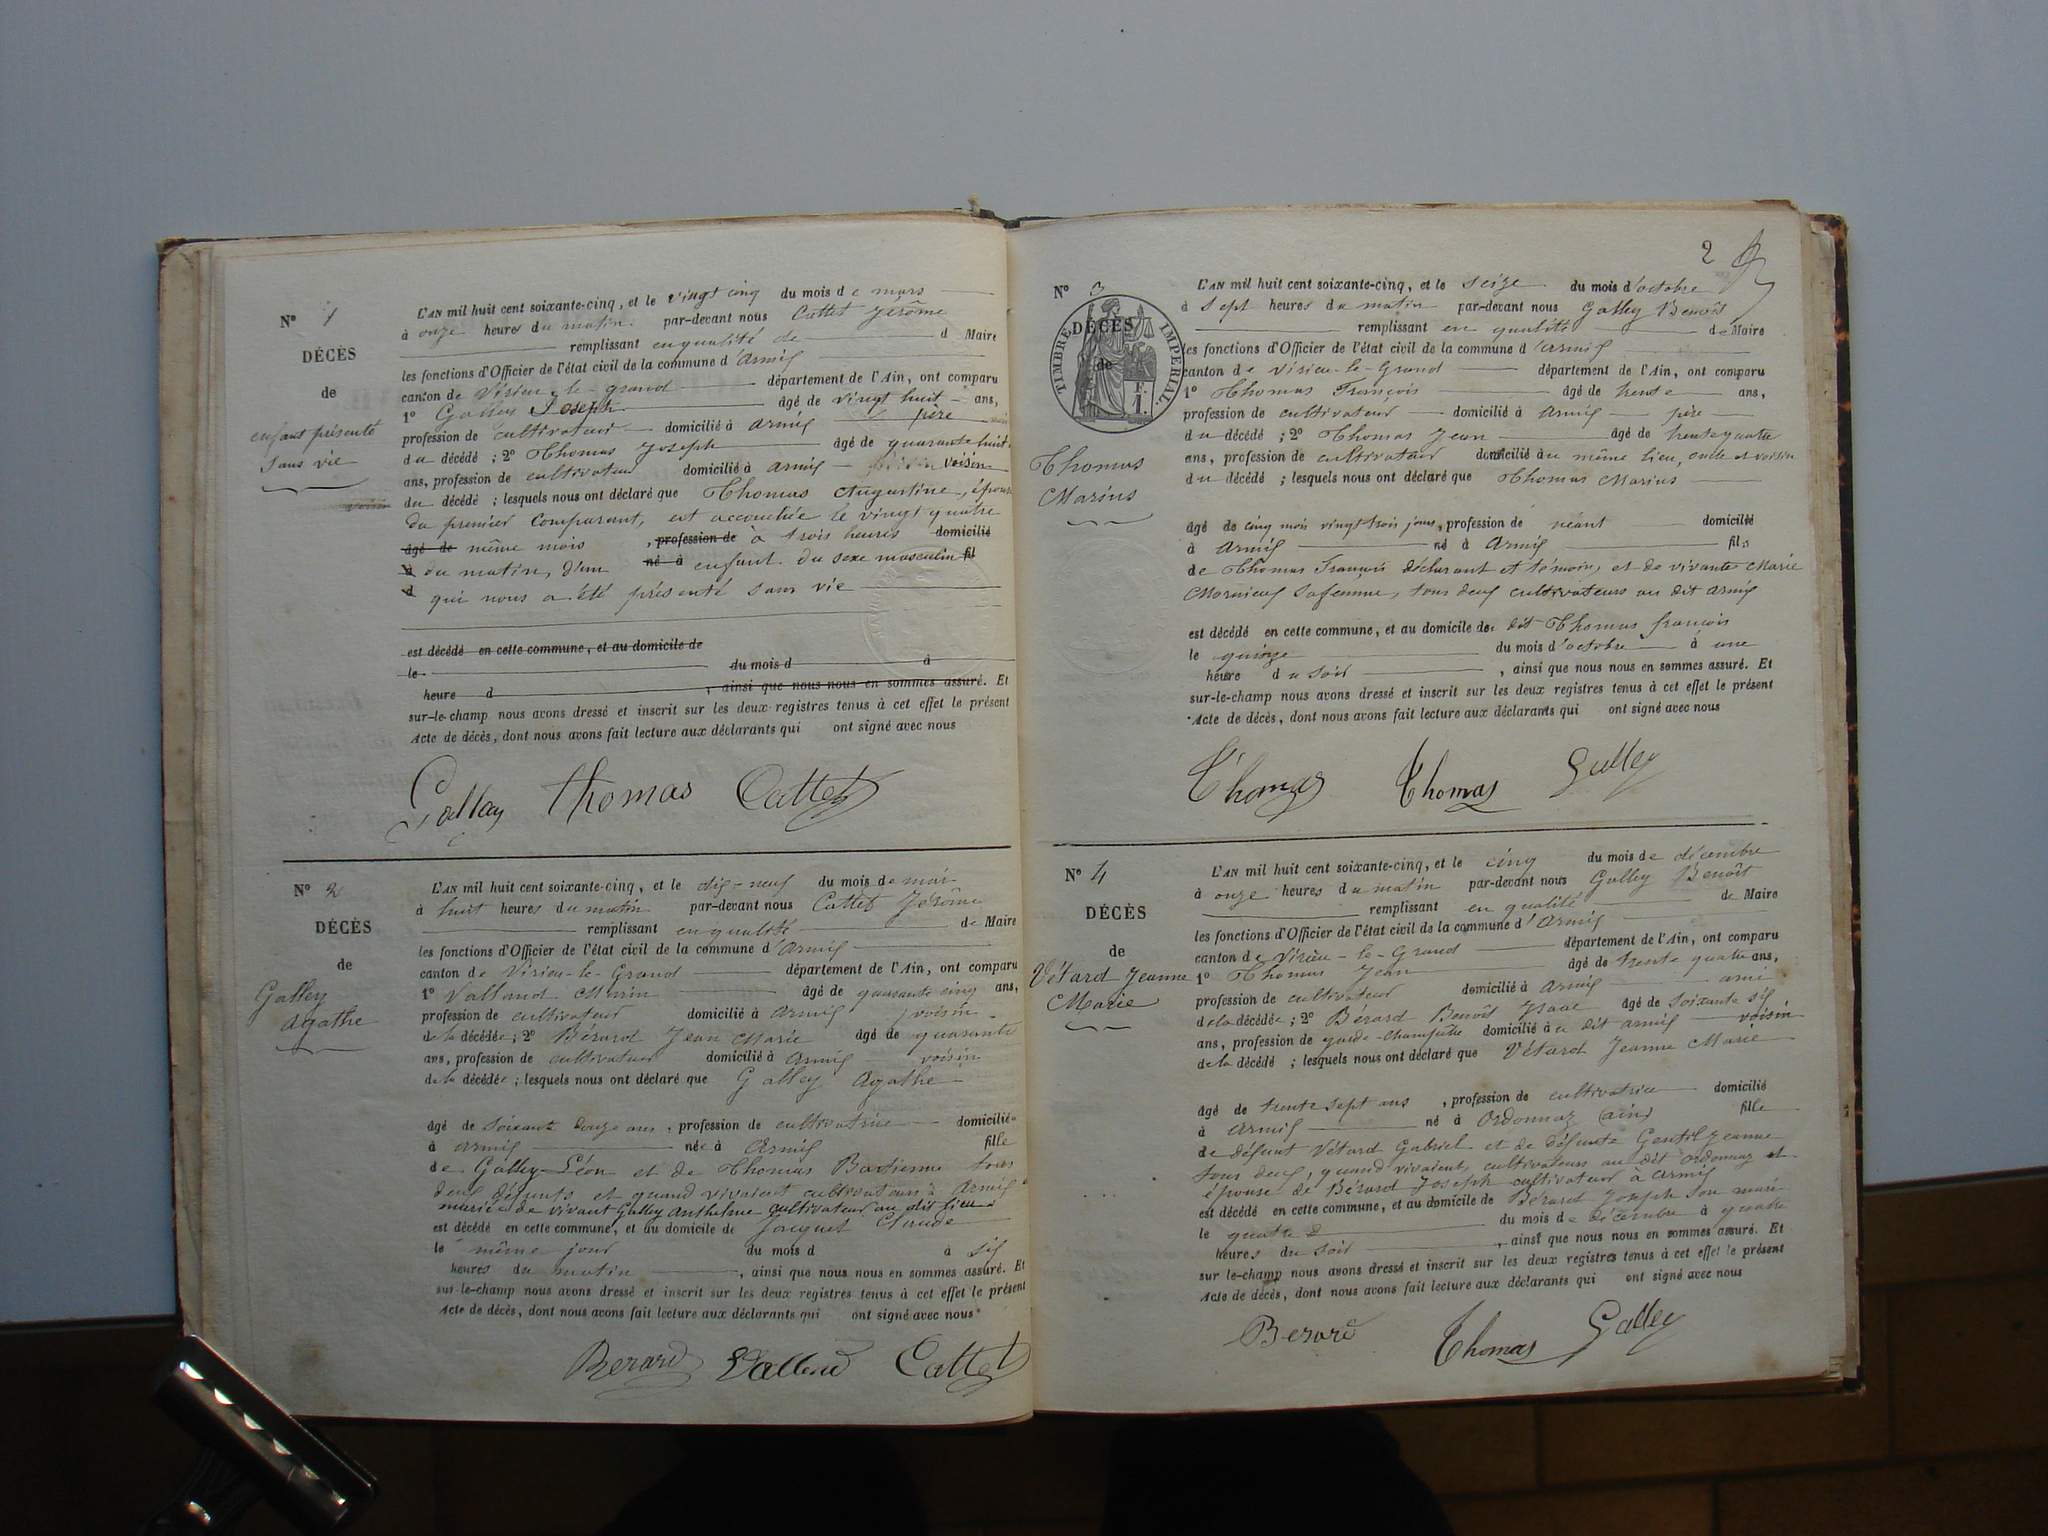 N° 1
DÉCÈS
de
enfant présenté
sans vie
L'AN mil huit cent soixante-cinq, et le vingt cinq du mois de mars
à onze heures du matin par-devant nous Cattet Jérôme
remplissant en qualité de d Maire
les fonctions d'Officier de l'état civil de la commune d'Armix
canton de Virieu-le-grand département de l'Ain, ont comparu
1° Galley Joseph âgé de vingt huit ans,
profession de cultivateur domicilié à armix père
du décédé ; 2° Thomas Joseph âgé de quarante huit
ans, profession de cultivateur domicilié à armix voisin
voisin du décédé ; lesquels nous ont déclaré que Thomas Augustine, épouse
du premier comparant, est accouchée le vingt quatre
âgé de même mois , profession de à trois heures domicilié
à du matin, d'un né à enfant du sexe masculin fil
d qui nous a été présenté sans vie
est décédé en cette commune, et au domicile de
le du mois d à
heure d , ainsi que nous nous en sommes assuré. Et
sur-le-champ nous avons dressé et inscrit sur les deux registres tenus à cet effet le présent
Acte de décès, dont nous avons fait lecture aux déclarants qui ont signé avec nous
Gallay thomas Cattet
N° 2
DÉCÈS
de
Galley
agathe
L'AN mil huit cent soixante-cinq, et le dix-neuf du mois de mai
à huit heures du matin par-devant nous Cattet Jérôme
remplissant en qualité de Maire
les fonctions d'Officier de l'état civil de la commune d'Armix
canton de Virieu-le-Grand département de l'Ain, ont comparu
1° Valland Marin âgé de quarante cinq ans,
profession de cultivateur domicilié à armix voisin
de la décédée ; 2° Bérard Jean Marie âgé de quarante
ans, profession de cultivateur domicilié à armix voisin
de la décédée ; lesquels nous ont déclaré que Galley Agathe
âgé de soixante douze ans, profession de cultivatrice domiciliée
à armix née à Armix fille
de Galley Léon et de Thomas tous
deux défunts et quand vivaient cultivateurs à Armix
mariée de vivant Galley Anthelme cultivateur au dit lieu
est décédé en cette commune, et au domicile de Jacquet Claude
le même jour du mois d à six
heures du matin , ainsi que nous nous en sommes assuré. Et
sur-le-champ nous avons dressé et inscrit sur les deux registres tenus à cet effet le présent
Acte de décès, dont nous avons fait lecture aux déclarants qui ont signé avec nous
Berard Valland Cattet
2
N° 3
TIMBRE IMPÉRIAL
1 F.
DÉCÈS
de
Thomas
Marius
L'AN mil huit cent soixante-cinq, et le seize du mois d'octobre
à sept heures du matin par-devant nous Galley Benoît
remplissant en qualité de Maire
les fonctions d'Officier de l'état civil de la commune d'armix
canton de Virieu-le-Grand département de l'Ain, ont comparu
1° Thomas François âgé de trente ans,
profession de cultivateur domicilié à armix père
du décédé ; 2° Thomas Jean âgé de trente quatre
ans, profession de cultivateur domicilié au même lieu, oncle et voisin
du décédé ; lesquels nous ont déclaré que Thomas Marius
âgé de cinq mois vingt trois jours, profession de néant domicilié
à armix né à armix fils
de Thomas François déclarant et témoin, et de vivante Marie
Mornieux sa femme, tous deux cultivateurs au dit armix
est décédé en cette commune, et au domicile de dit Thomas françois
le quinze du mois d'octobre à une
heure du soir , ainsi que nous nous en sommes assuré. Et
sur-le-champ nous avons dressé et inscrit sur les deux registres tenus à cet effet le présent
Acte de décès, dont nous avons fait lecture aux déclarants qui ont signé avec nous
Thomas Thomas Galley
N° 4
DÉCÈS
de
Vétard Jeanne
Marie
L'AN mil huit cent soixante-cinq, et le cinq du mois de décembre
à onze heures du matin par-devant nous Galley Benoît
remplissant en qualité de Maire
les fonctions d'Officier de l'état civil de la commune d'Armix
canton de Virieu-le-Grand département de l'Ain, ont comparu
1° Thomas Jean âgé de trente quatre ans,
profession de cultivateur domicilié à armix ami
de la décédée ; 2° Bérard Benoît Isaac âgé de soixante six
ans, profession de garde-champêtre domicilié au dit armix voisin
de la décédé ; lesquels nous ont déclaré que Vétard Jeanne Marie
âgé de trente sept ans , profession de cultivatrice domicilié
à armix né à Ordonnaz (ain) fille
de défunt Vétard Gabriel et de défunte Gentil Jeanne
tous deux, quand vivaient, cultivateurs au dit Ordonnaz et
épouse de Bérard Joseph cultivateur à armix
est décédé en cette commune, et au domicile de Bérard Joseph son mari
le quatre du mois de décembre à quatre
heures du soir , ainsi que nous nous en sommes assuré. Et
sur le-champ nous avons dressé et inscrit sur les deux registres tenus à cet effet le présent
Acte de décès, dont nous avons fait lecture aux déclarants qui ont signé avec nous
Berard Thomas Galley